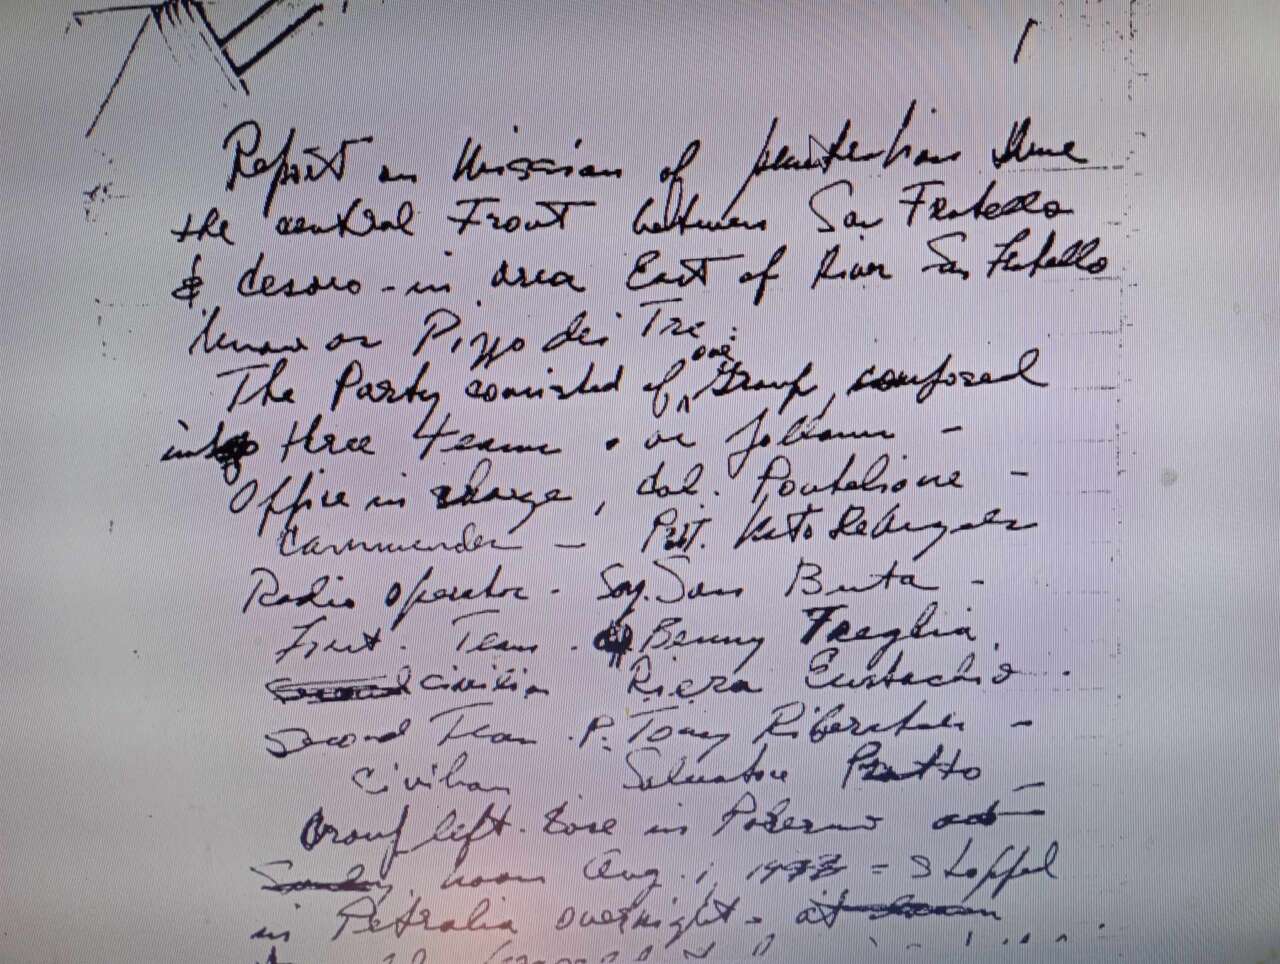 Report on Mission of penetration thru
the central Front between San Fratello
& Cesaro - in area East of River San Fratello
known as Pizzo dei Tre
The Party consisted of one Group, composed
into three teams. as follows -
Office in charge, Col. Pontelione -
Commander - Pvt. Vito DeAngelis
Radio operator - Sgt. Sam Buta -
First Team. Benny Treglia
civilian Riera Eustachio.
Second Team. P. Tony Ribarich -
Civilian Salvatore Pratto
Group left base in Palermo
noon Aug. 1, = Stopped
in Petralia overnight -